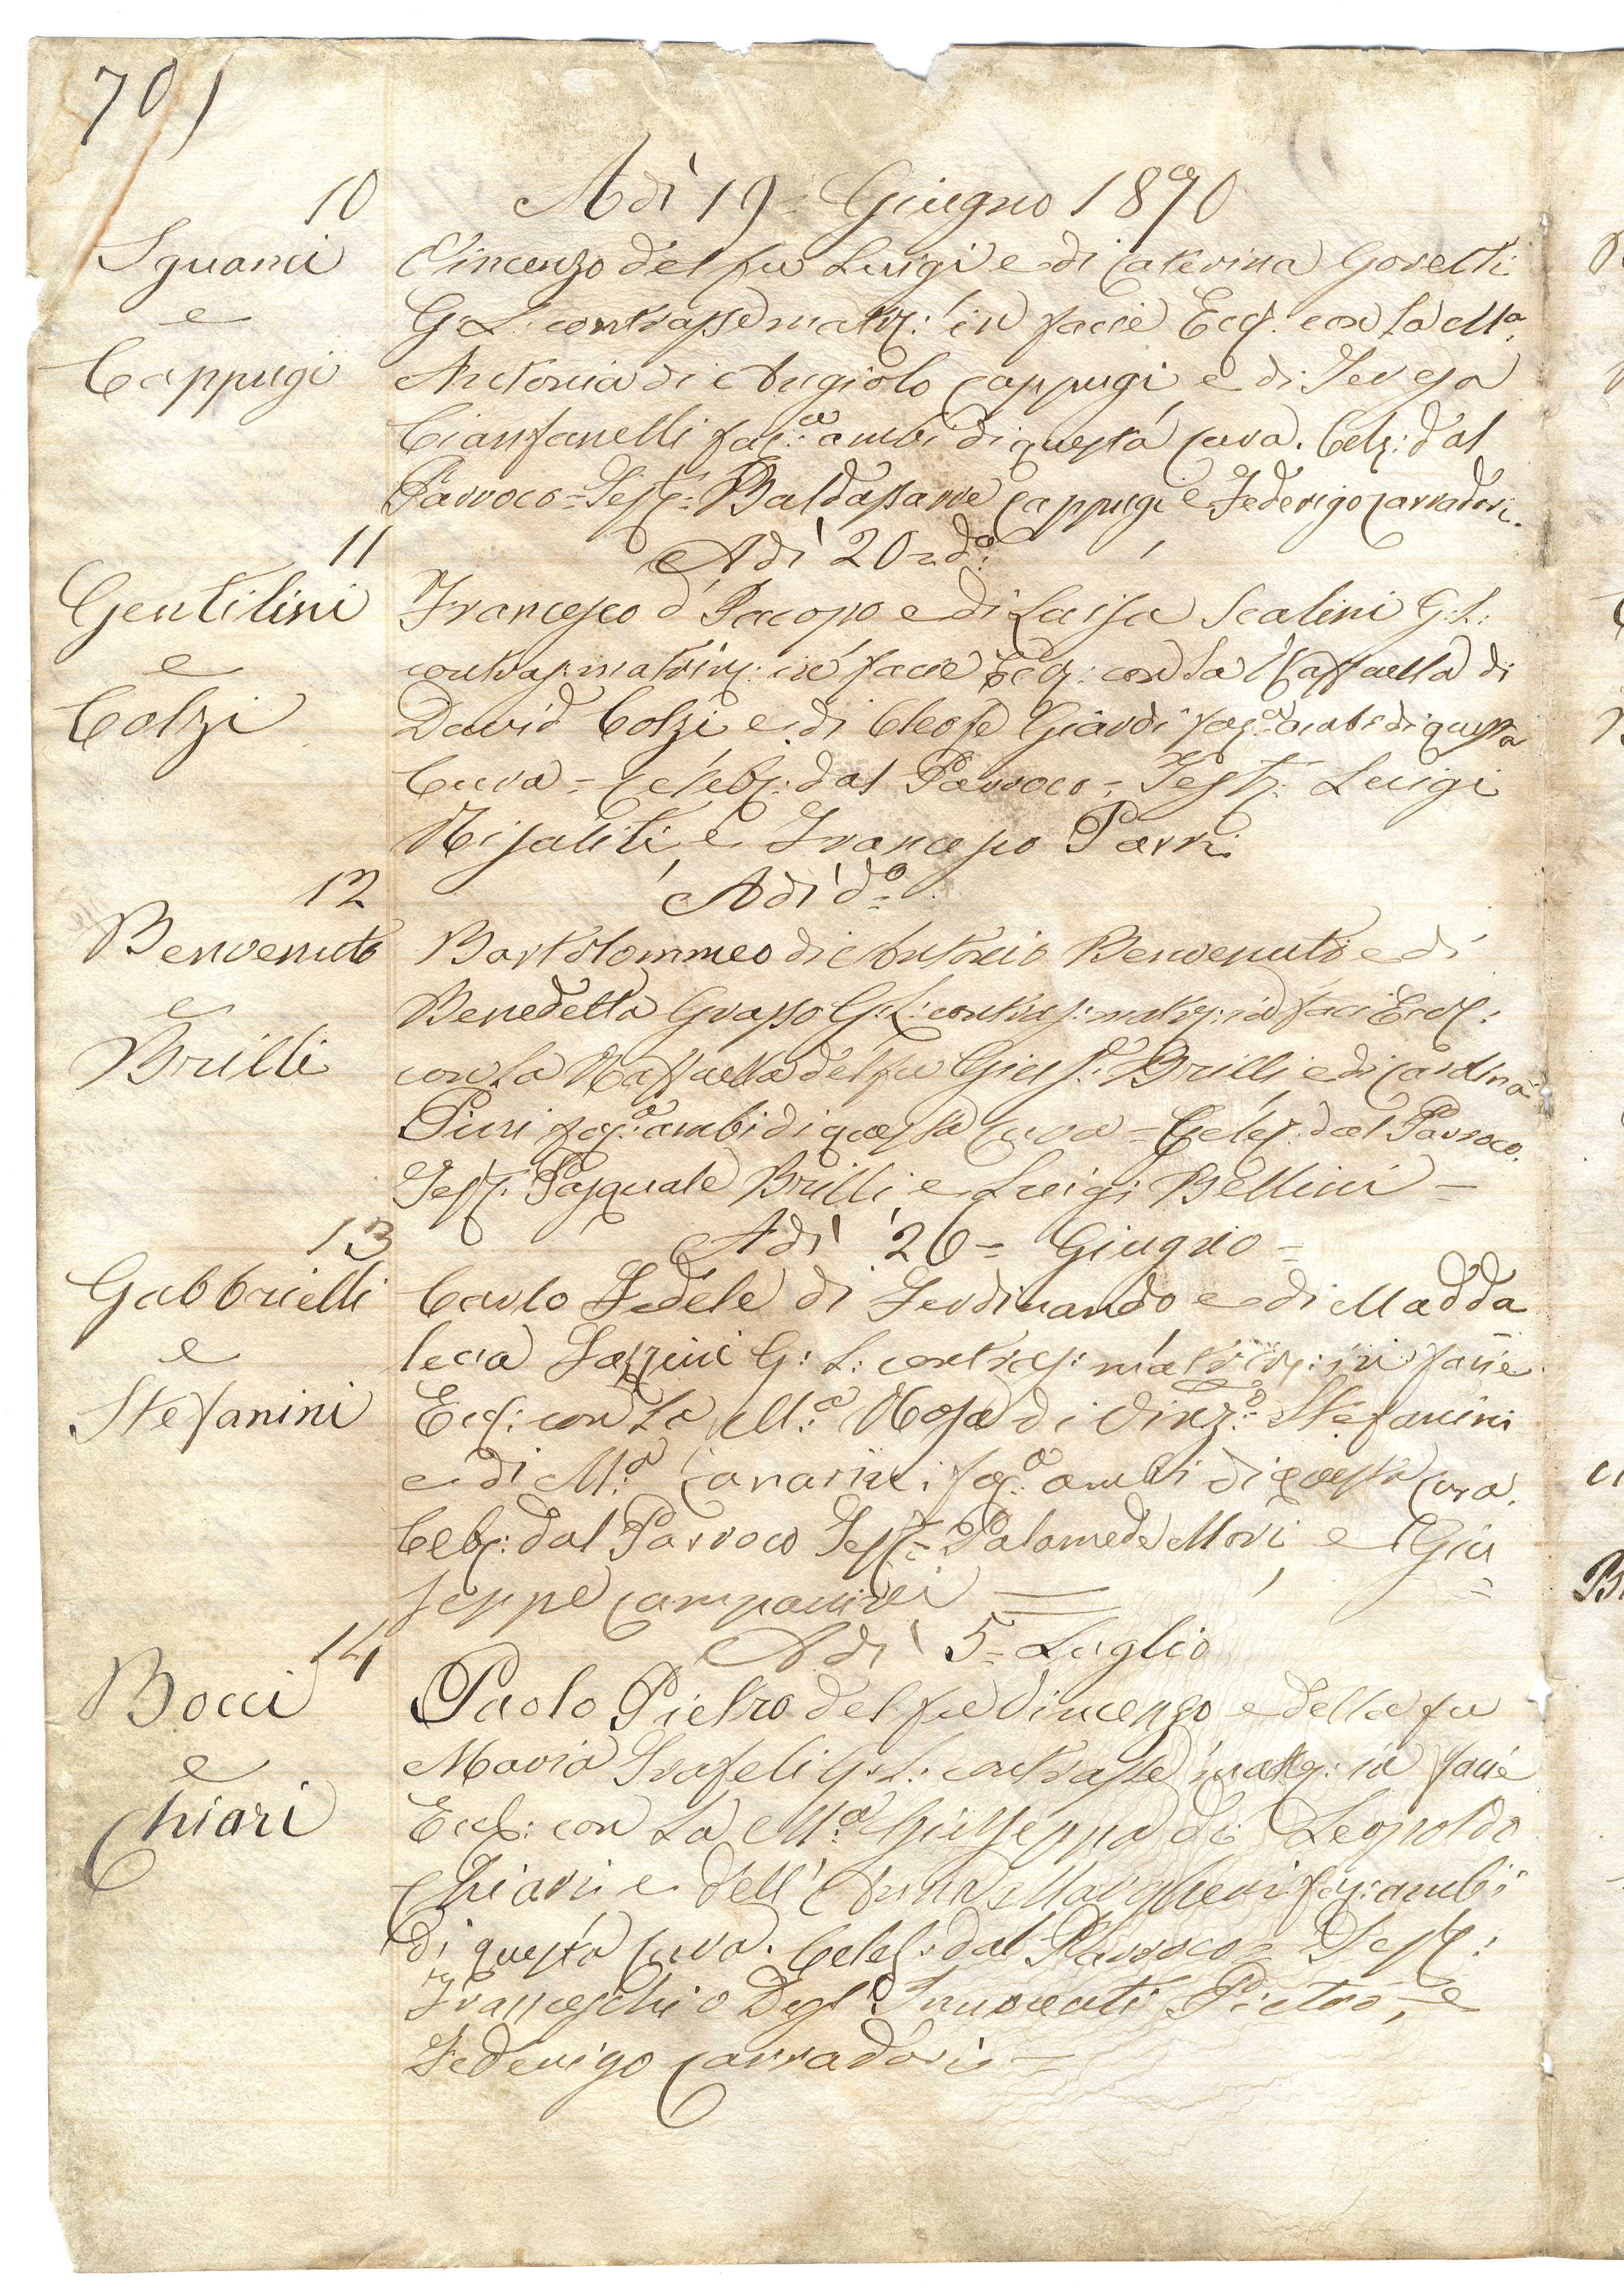 701
10
Adì 19 = Giugno 1870
Sguanci
e
Cappugi
Vincenzo del fu Luigi e di Caterina Goretti
G. L. contrasse matr: in facie Eccl. con la Ma
Antonia di Angiolo Cappugi e di Teresa
Cianfanelli fac: ambi di questa Cura. Celeb: dal
Parroco = Test: Baldassarre Cappugi e Federigo Carradori.
11
Adì 20 = do
Gentilini
e
Colzi
Francesco d' Jacopo e di Luisa Scalini G. L:
contras: matrim: in facie Eccl: con la Raffaella di
David Colzi e di Cleofe Giardi ambi di questa
Cura = Celeb: dal Parroco = Test: Luigi
Risaliti e Francesco Parri
12
Adì do
Benvenuto
e
Brilli
Bartolommeo di Antonio Benvenuto e di
Benedetta Grasso G: L: contras: matr: in faci Eccl:
con la Raffaella del fu Gius: Brilli e di
Pieri ambi di questa Cura = Celeb: dal Parroco.
Test: Pasquale Brilli e Luigi Bellini =
13
Adì 26 = Giugno =
Gabbrielli
e
Stefanini
Carlo Fedele di Ferdinando e di Madda
lena G: L: contras: matrim: in facie
Eccl: con La M:a Rosa di Vinz:o Stefanini
e di M:a ambi di questa Cura.
Celeb: dal Parroco Test: = Palamede Mori e Giu
seppe Campanini
14
Adì 5 = Luglio
Bocci
e
Chiari
Paolo Pietro del fu Vincenzo e della fu
Maria G. L: contrasse matr: in facie
Eccl: con La M:a Giuseppa di Leopoldo
Chiari e dell' Anna Margheri ambi
di questa Cura. Celeb: dal Parroco = Test:
Franceschi o Degl' Innocenti Pietro, e
Federigo Carradori =